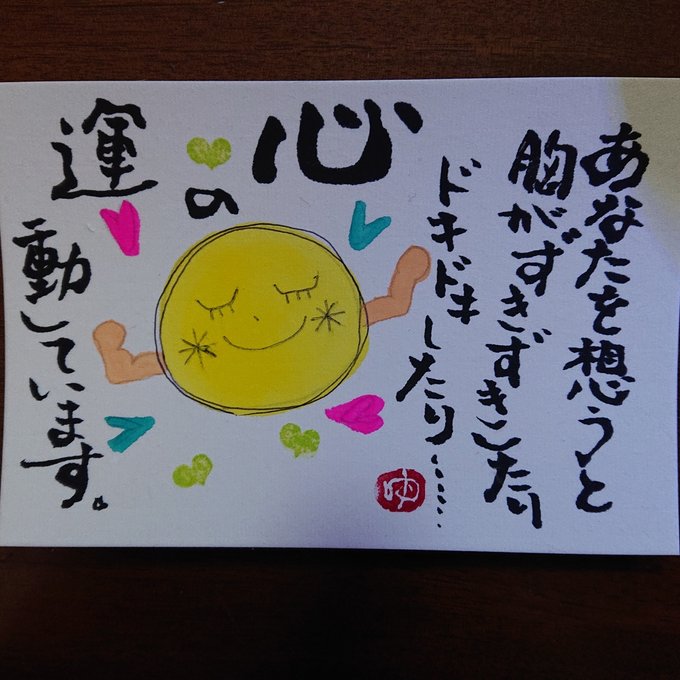 あなたを想うと
胸がずきずきしたり
ドキドキしたり……
心の
運
動しています。